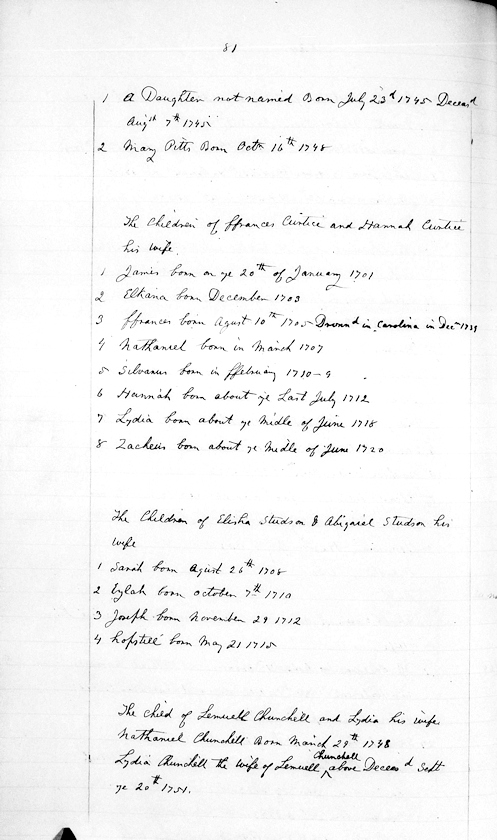 81
1 A Daughter not named Born July 23d 1745 Deceasd
Augst 7th 1745
2 Mary Pitts Born Octr 16th 1748
The Children of ffrances Curtice and Hannah Curtice
his wife.
1 James born on ye 20th of January 1701
2 Elkana born December 1703
3 ffrances born Agust 10th 1705 - Drownd in Carolina in Decr 1739
4 Nathaniel born in March 1707
5 Silvanus born in ffebruary 1710-9
6 Hannah born about ye Last July 1712
7 Lydia born about ye Midle of June 1718
8 Zacheus born about ye Midle of June 1720
The Children of Elisha Studson & Abigaiel Studson his
wife
1 Sarah born Agust 26th 1708
2 born October 7th 1710
3 Joseph born November 29 1712
4 hopstill born May 21 1715
The Child of Lemuell Churchell and Lydia his wife
Nathaniel Churchell Born March 29th 1748
Lydia Churchell the wife of Lemuell Churchell above Deceasd Sept
ye 20th 1751.